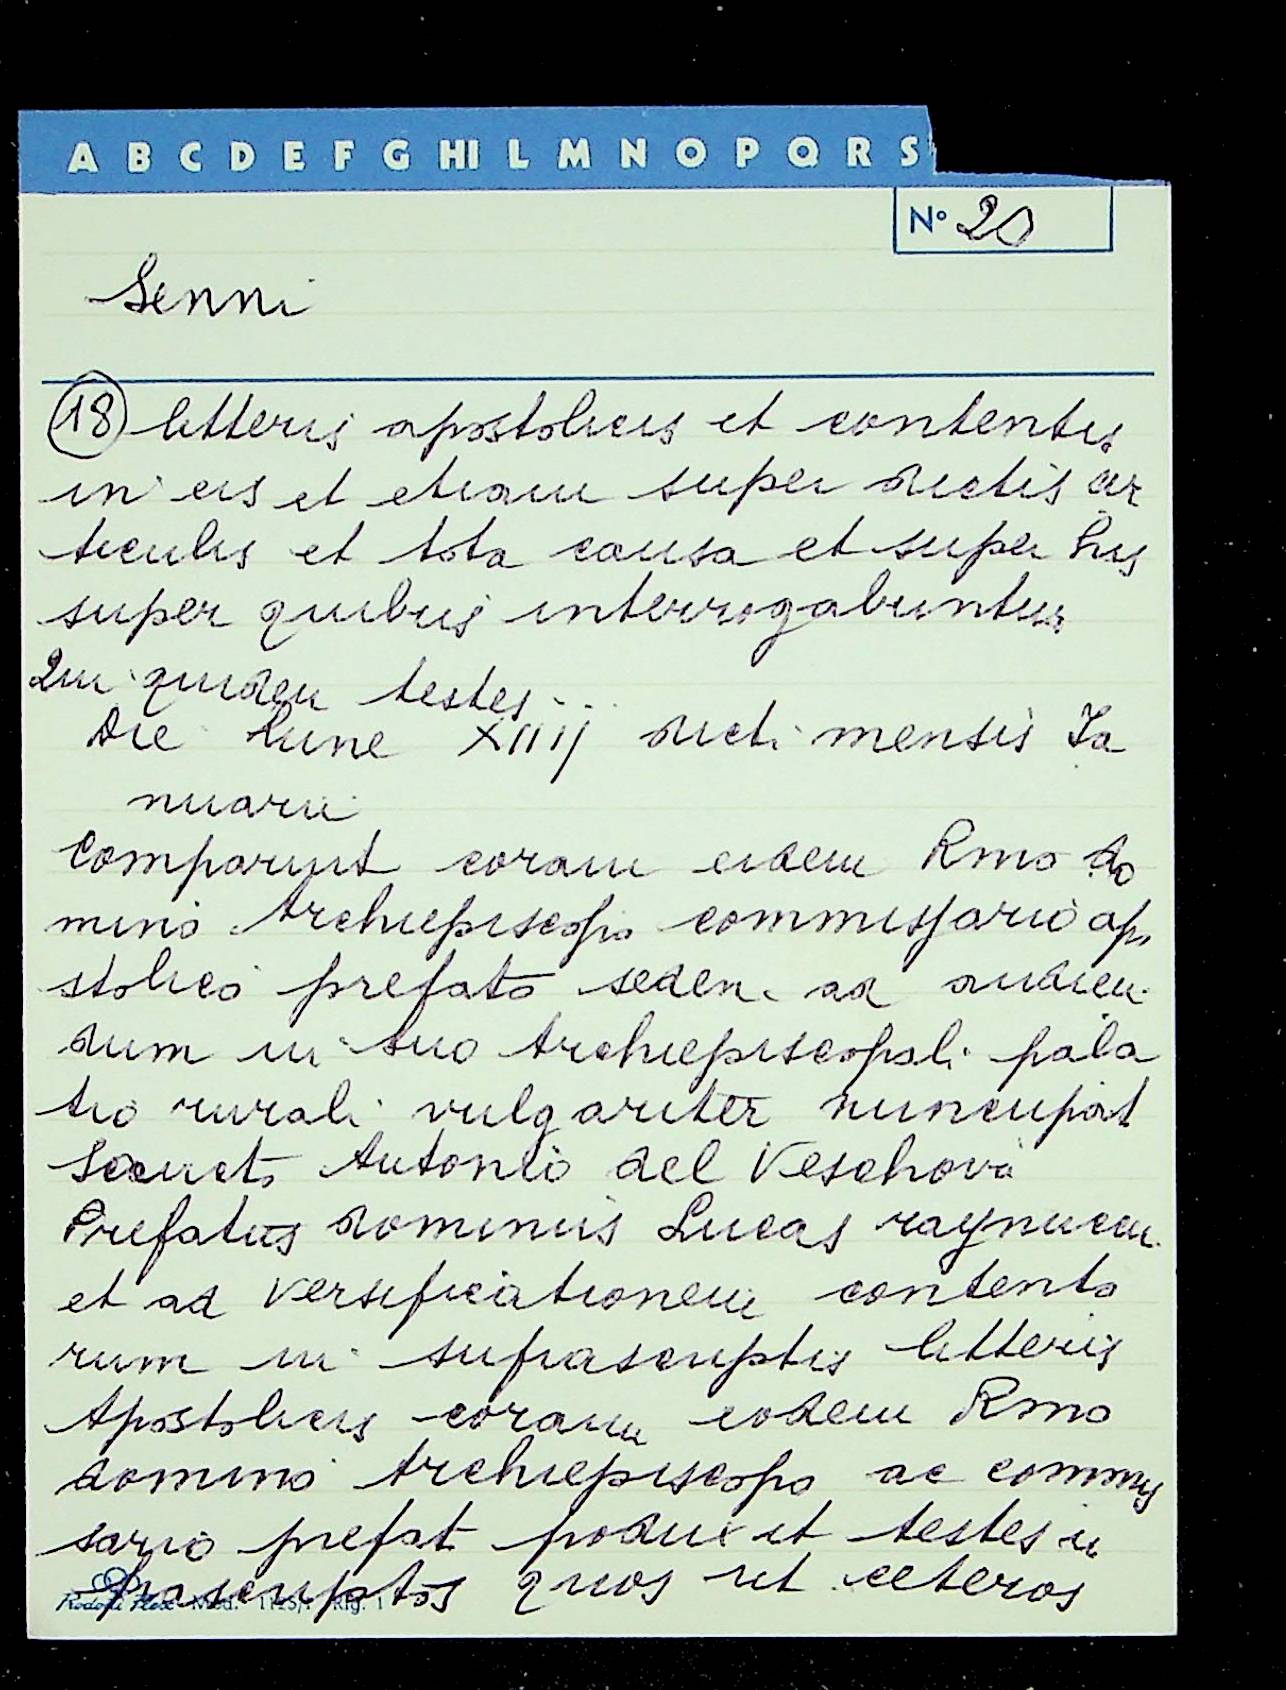 A B C D E F G HI L M N O P Q R S
N° 20
Senni
18 litteris apostolicis et contentis
in eis et etiam super dictis ar
ticulis et tota causa et super his
super quibus interrogabuntur
Qui quidem testes...
Die lune XIIIJ dicti mensis Ia
nuarii
Comparuit coram eidem Rmo do
mino Archiepiscopo commissario apo
stolico prefato seden. ad audien
dum in suo Archiepiscopali pala
tio rurali vulgariter nuncupat
Antonio del Veschovo
Prefatus dominus Lucas raynucci
et ad versificationem contento
rum in suprascriptis litteris
Apostolicis coram eodem Rmo
domino Archiepiscopo ac commis
sario prefat produxit testes in
frascriptos quos ut ceteros
Rodofil Flex Mod. 1125/ Rig. 1